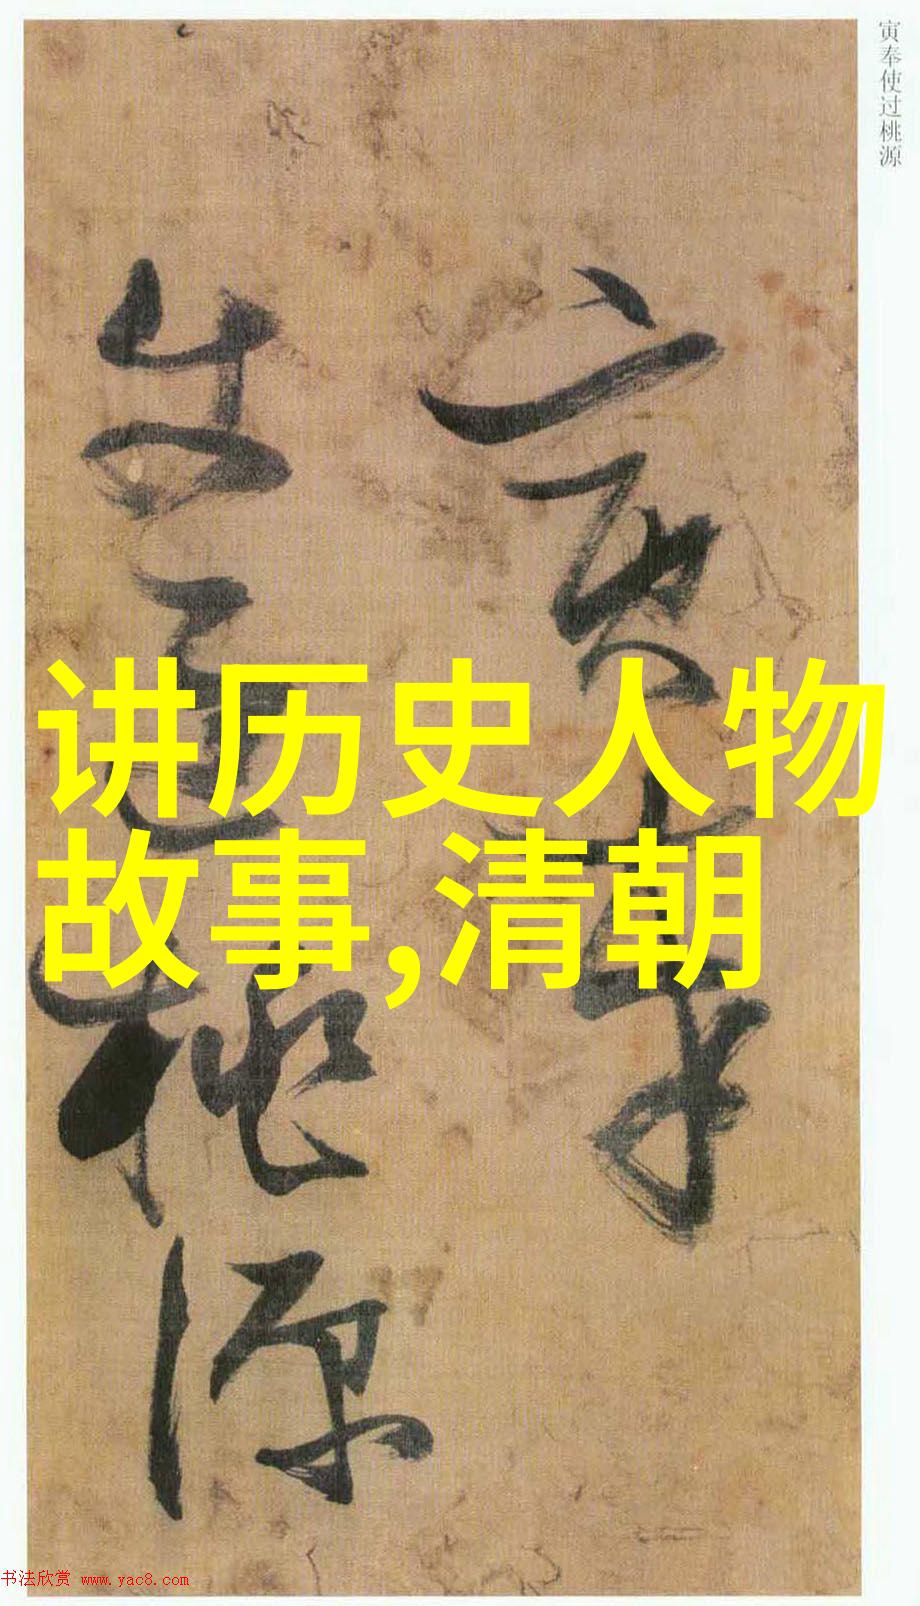 寅奉使过桃源
寅奉
使过桃源
讲历史人物
故事,清朝
书法欣赏 www.yac8.com